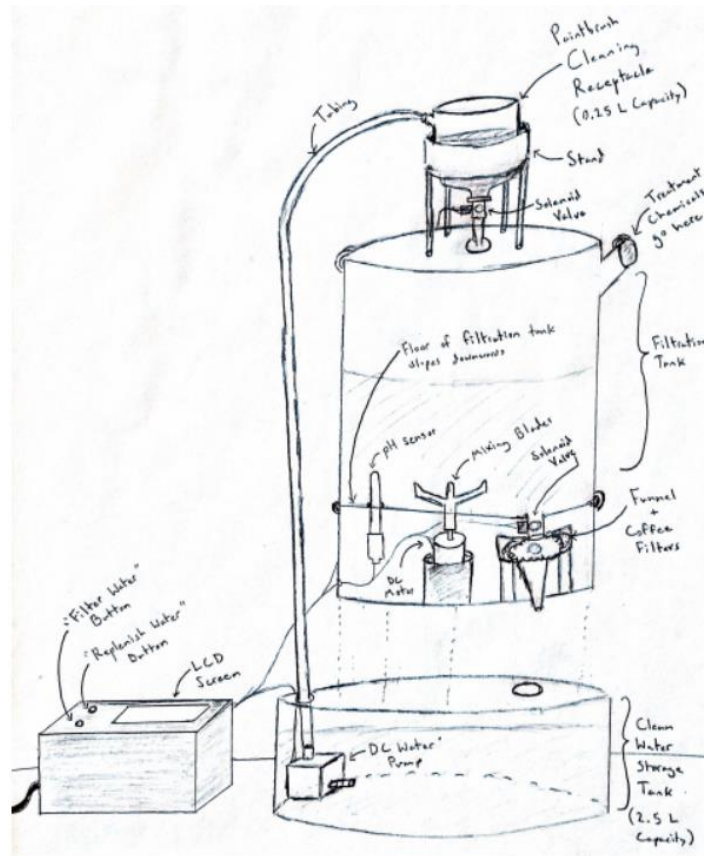 Paintbrush
Cleaning
Receptacle
(0.25 L Capacity)
Tubing
Stand
Solenoid
Valve
Treatment
Chemicals
go here
Floor of filtration tank
slopes downwards
Filtration
Tank
pH sensor
Mixing Blades
Solenoid
Valve
Funnel
+
Coffee
Filters
DC
Motor
"Filter Water"
Button
"Replenish Water"
Button
LCD
Screen
DC Water
Pump
Clean
Water
Storage
Tank
(2.5 L
Capacity)